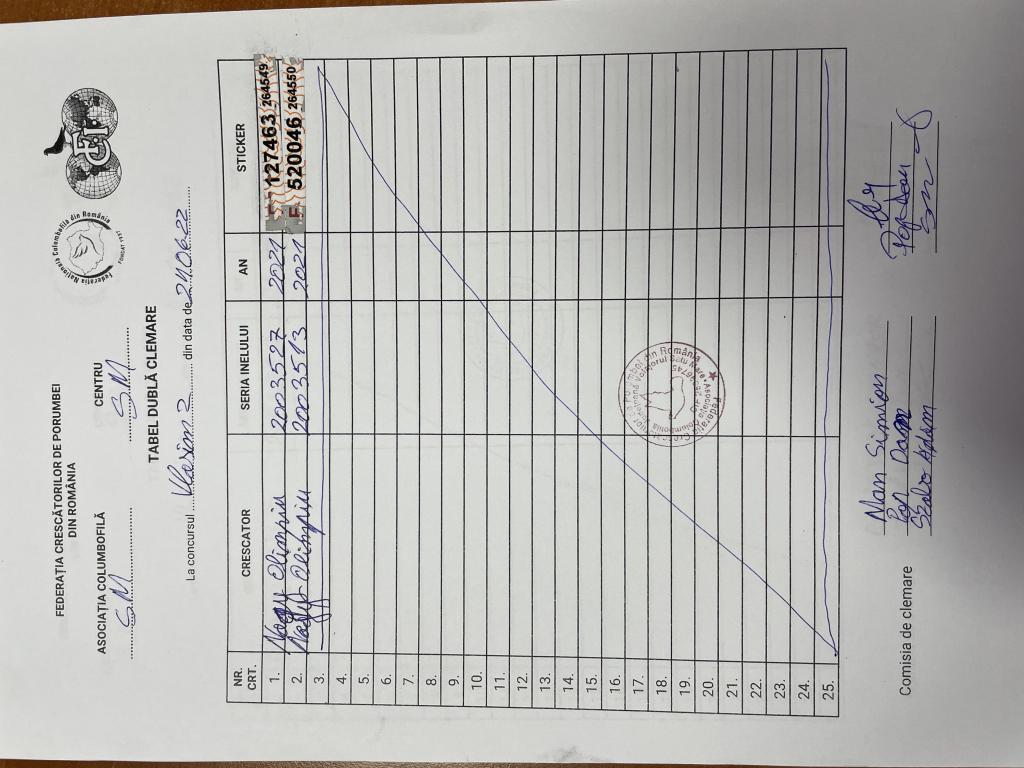 FEDERAȚIA CRESCĂTORILOR DE PORUMBEI
DIN ROMÂNIA
ASOCIAȚIA COLUMBOFILĂ CENTRU
S.M S.M
TABEL DUBLĂ CLEMARE
La concursul din data de 21.06.22
NR. CRT. CRESCATOR SERIA INELULUI AN STICKER
1. Nagy Olimpiu 2003527 2021 127463 264549
2. Nagy Olimpiu 2003513 2021 F 520046 264550
3.
4.
5.
6.
7.
8.
9.
10.
11.
12.
13.
14.
15.
16.
17.
18.
19.
20.
21.
22.
23.
24.
25.
Comisia de clemare
Man Simion
Pop Dan
Szabo Adam
Federația Națională Columbofilă din România